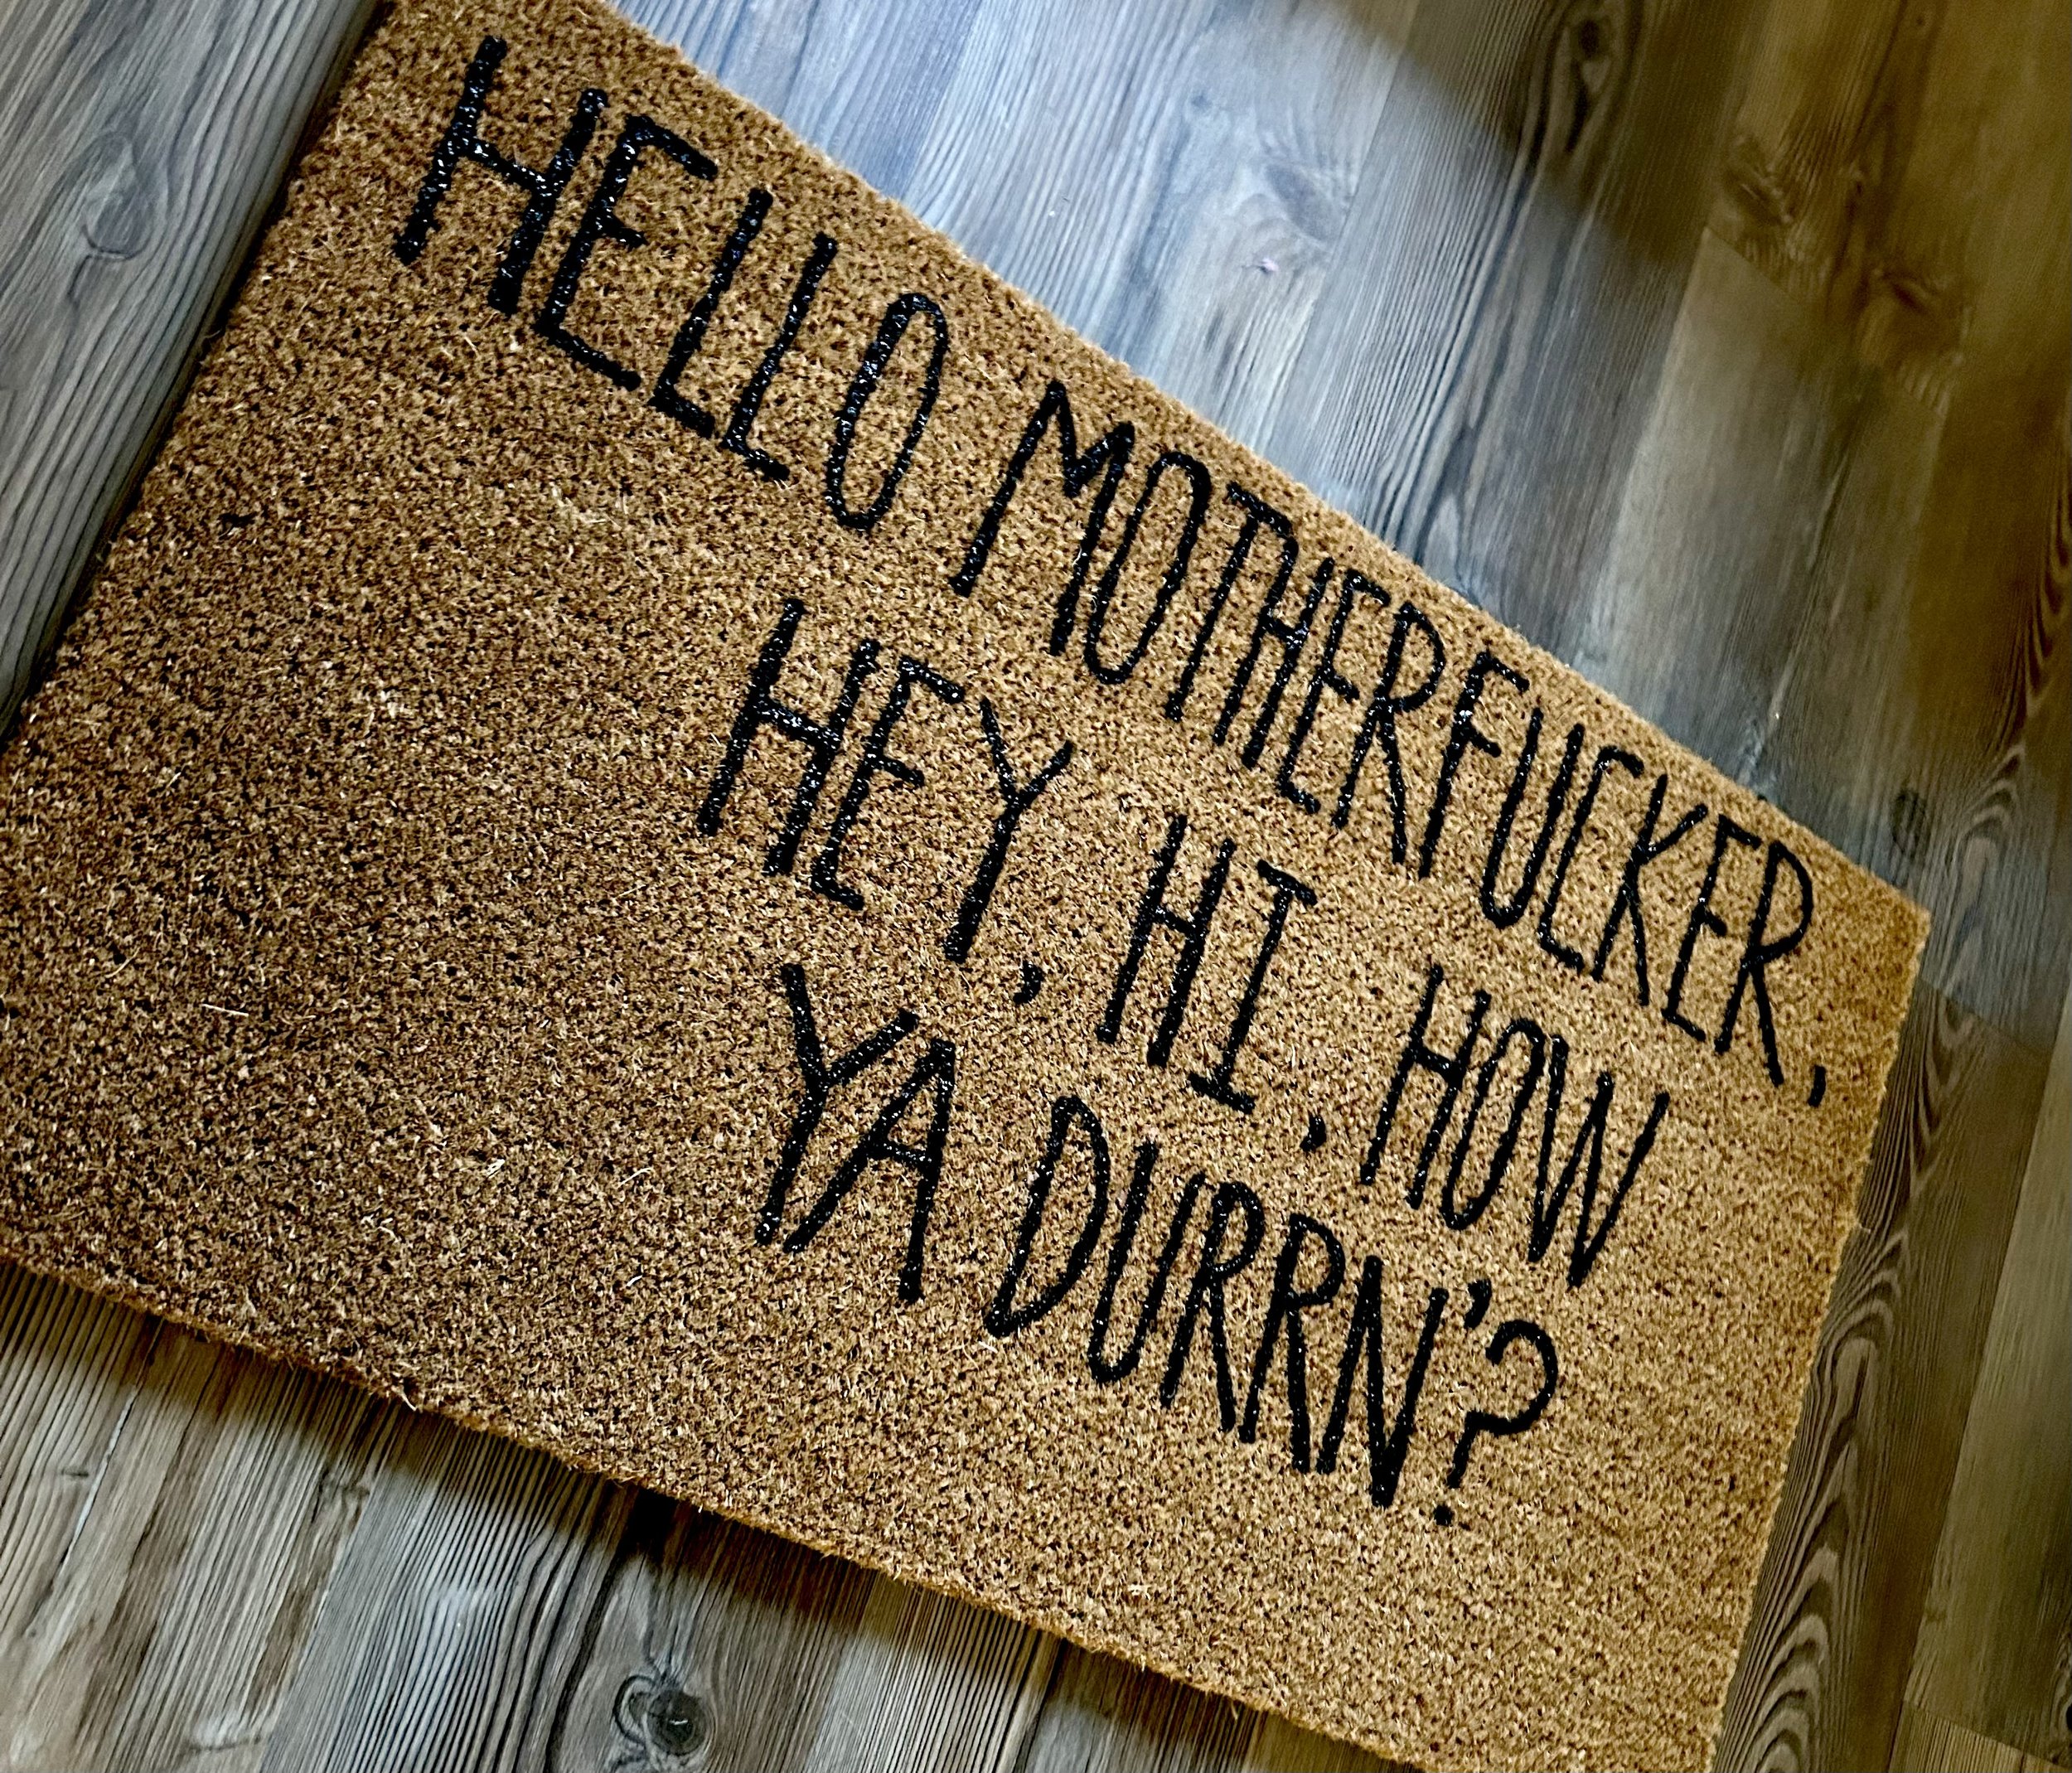 HELLO MOTHERFUCKER,
HEY, HI, HOW
YA DURRN'?